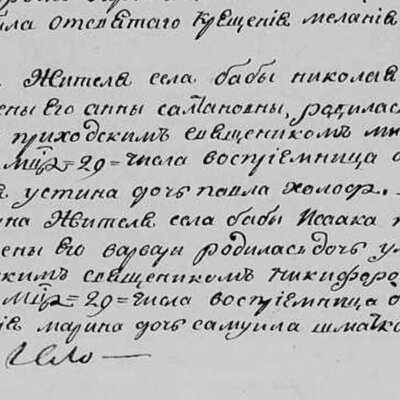 ила отсвятаго крещенія меланія
Жителя села бабы николая
ены его анны самоновны, родилась
приходскимъ священикомъ ми
мцр = 29 = числа воспріемница
устина дочь павла холод.
на жителя села бабы Исаака
ены его варвары родилась дочь ул
скимъ священикомъ никифоро
мцр = 29 = числа воспріемница
іе марина дочь самуила шмачко